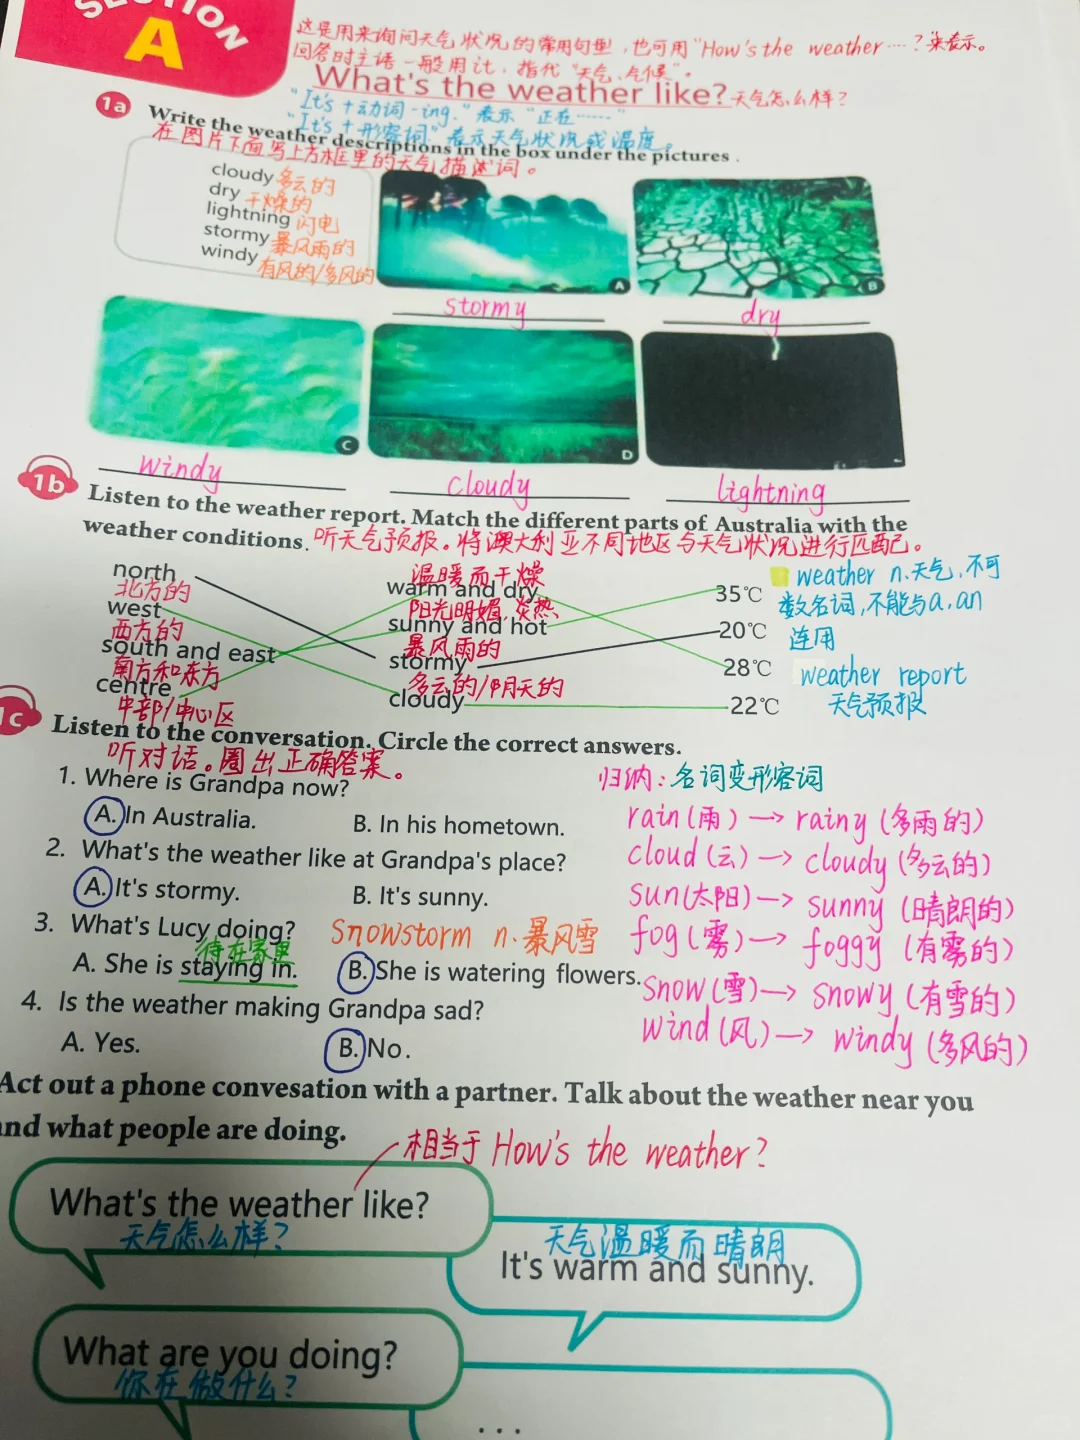 SECTION
A
这是用来询问天气状况的常用句型，也可用"How's the weather…?"来表示。
回答时主语一般用it，指代"天气、气候"。
What's the weather like? 天气怎么样?
"It's +动词-ing."表示"正在……"
"It's +形容词"表示天气状况或温度。
1a Write the weather descriptions in the box under the pictures.
在图片下面写上方框里的天气描述词。
cloudy 多云的
dry 干燥的
lightning 闪电
stormy 暴风雨的
windy 有风的/多风的
A
B
stormy
dry
C
D
windy
cloudy
lightning
1b Listen to the weather report. Match the different parts of Australia with the
weather conditions. 听天气预报。将澳大利亚不同地区与天气状况进行匹配。
north
北方的
west
西方的
south and east
南方和东方
centre
中部/中心区
温暖而干燥
warm and dry
阳光明媚,炎热
sunny and hot
暴风雨的
stormy
多云的/阴天的
cloudy
35℃
20℃
28℃
22℃
weather n.天气,不可
数名词,不能与a,an
连用
weather report
天气预报
1c Listen to the conversation. Circle the correct answers.
听对话。圈出正确答案。
1. Where is Grandpa now?
A. In Australia. B. In his hometown.
2. What's the weather like at Grandpa's place?
A. It's stormy. B. It's sunny.
3. What's Lucy doing? Snowstorm n.暴风雪
待在家里
A. She is staying in. B. She is watering flowers.
4. Is the weather making Grandpa sad?
A. Yes. B. No.
归纳：名词变形容词
rain(雨)→rainy(多雨的)
cloud(云)→cloudy(多云的)
sun(太阳)→sunny(晴朗的)
fog(雾)→foggy(有雾的)
snow(雪)→snowy(有雪的)
wind(风)→windy(多风的)
Act out a phone convesation with a partner. Talk about the weather near you
and what people are doing.
相当于 How's the weather?
What's the weather like?
天气怎么样?
天气温暖而晴朗
It's warm and sunny.
What are you doing?
你在做什么?
...